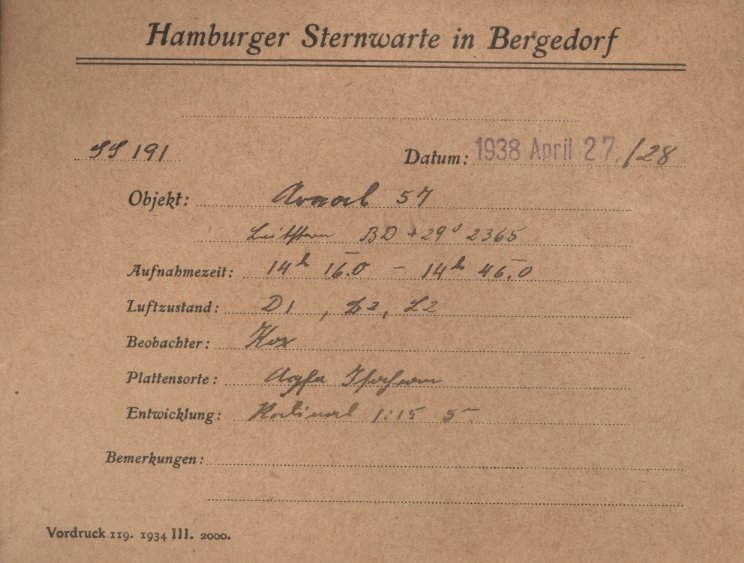 Hamburger Sternwarte in Bergedorf
SS 191 Datum: 1938 April 27./28
Objekt: Areal 57
Leitstern BD +29° 2365
Aufnahmezeit: 14h 16.0 – 14h 46.0
Luftzustand: D1, 2, L2
Beobachter: Kox
Plattensorte: Agfa Isochrom
Entwicklung: Rodinal 1:15 5m
Bemerkungen:
Vordruck 119. 1934 III. 2000.